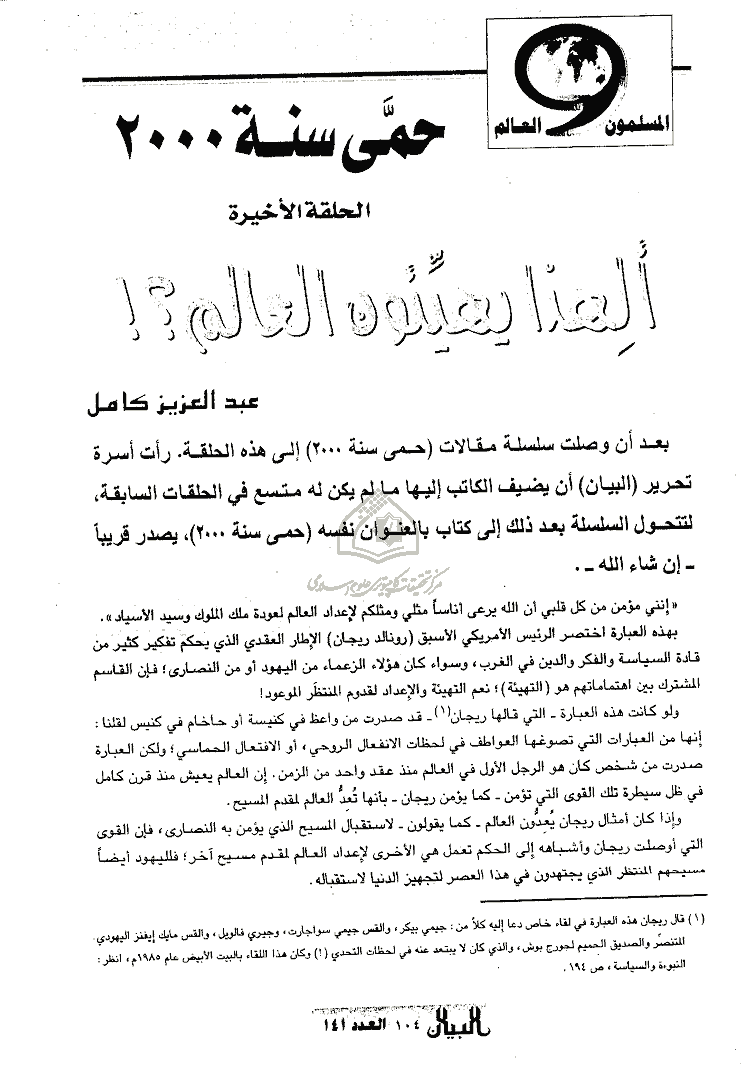 المسلمون و العالم
حمَّى سنة ٢٠٠٠
الحلقة الأخيرة
ألهذا يهيِّئون العالم؟!
عبد العزيز كامل
بعد أن وصلت سلسلة مقالات (حمى سنة ٢٠٠٠) إلى هذه الحلقة. رأت أسرة
تحرير (البيان) أن يضيف الكاتب إليها ما لم يكن له متسع في الحلقات السابقة،
لتتحول السلسلة بعد ذلك إلى كتاب بالعنوان نفسه (حمى سنة ٢٠٠٠)، يصدر قريباً
ـ إن شاء الله ـ .
مركز تحقیقات کامپیوتری علوم اسلامی
« إنني مؤمن من كل قلبي أن الله يرعى أناساً مثلي ومثلكم لإعداد العالم لعودة ملك الملوك وسيد الأسياد ».
بهذه العبارة اختصر الرئيس الأمريكي الأسبق (رونالد ريجان) الإطار العقدي الذي يحكم تفكير كثير من
قادة السياسة والفكر والدين في الغرب، وسواء كان هؤلاء الزعماء من اليهود أو من النصارى؛ فإن القاسم
المشترك بين اهتماماتهم هو (التهيئة)؛ نعم التهيئة والإعداد لقدوم المنتظَر الموعود!
ولو كانت هذه العبارة ـ التي قالها ريجان(١) ـ قد صدرت من واعظ في كنيسة أو حاخام في كنيس لقلنا :
إنها من العبارات التي تصوغها العواطف في لحظات الانفعال الروحي، أو الافتعال الحماسي؛ ولكن العبارة
صدرت من شخص كان هو الرجل الأول في العالم منذ عقد واحد من الزمن. إن العالم يعيش منذ قرن كامل
في ظل سيطرة تلك القوى التي تؤمن ـ كما يؤمن ريجان ـ بأنها تُعِدُّ العالم لمقدم المسيح.
وإذا كان أمثال ريجان يُعِدُّون العالم ـ كما يقولون ـ لاستقبال المسيح الذي يؤمن به النصارى، فإن القوى
التي أوصلت ريجان وأشباهه إلى الحكم تعمل هي الأخرى لإعداد العالم لمقدم مسيح آخر؛ فلليهود أيضاً
مسيحهم المنتظر الذي يجتهدون في هذا العصر لتجهيز الدنيا لاستقباله.
(١) قال ريجان هذه العبارة في لقاء خاص دعا إليه كلاً من : جيمي بيكر، والقس جيمي سواجارت، وجيري فالويل، والقس مايك إيفنز اليهودي
المتنصِّر والصديق الحميم لجورج بوش، والذي كان لا يبتعد عنه في لحظات التحدي (!) وكان هذا اللقاء بالبيت الأبيض عام ١٩٨٥م، انظر :
النبوءة والسياسة ، ص ١٩٤ .
البيان ١٠٤ العدد ١٤١